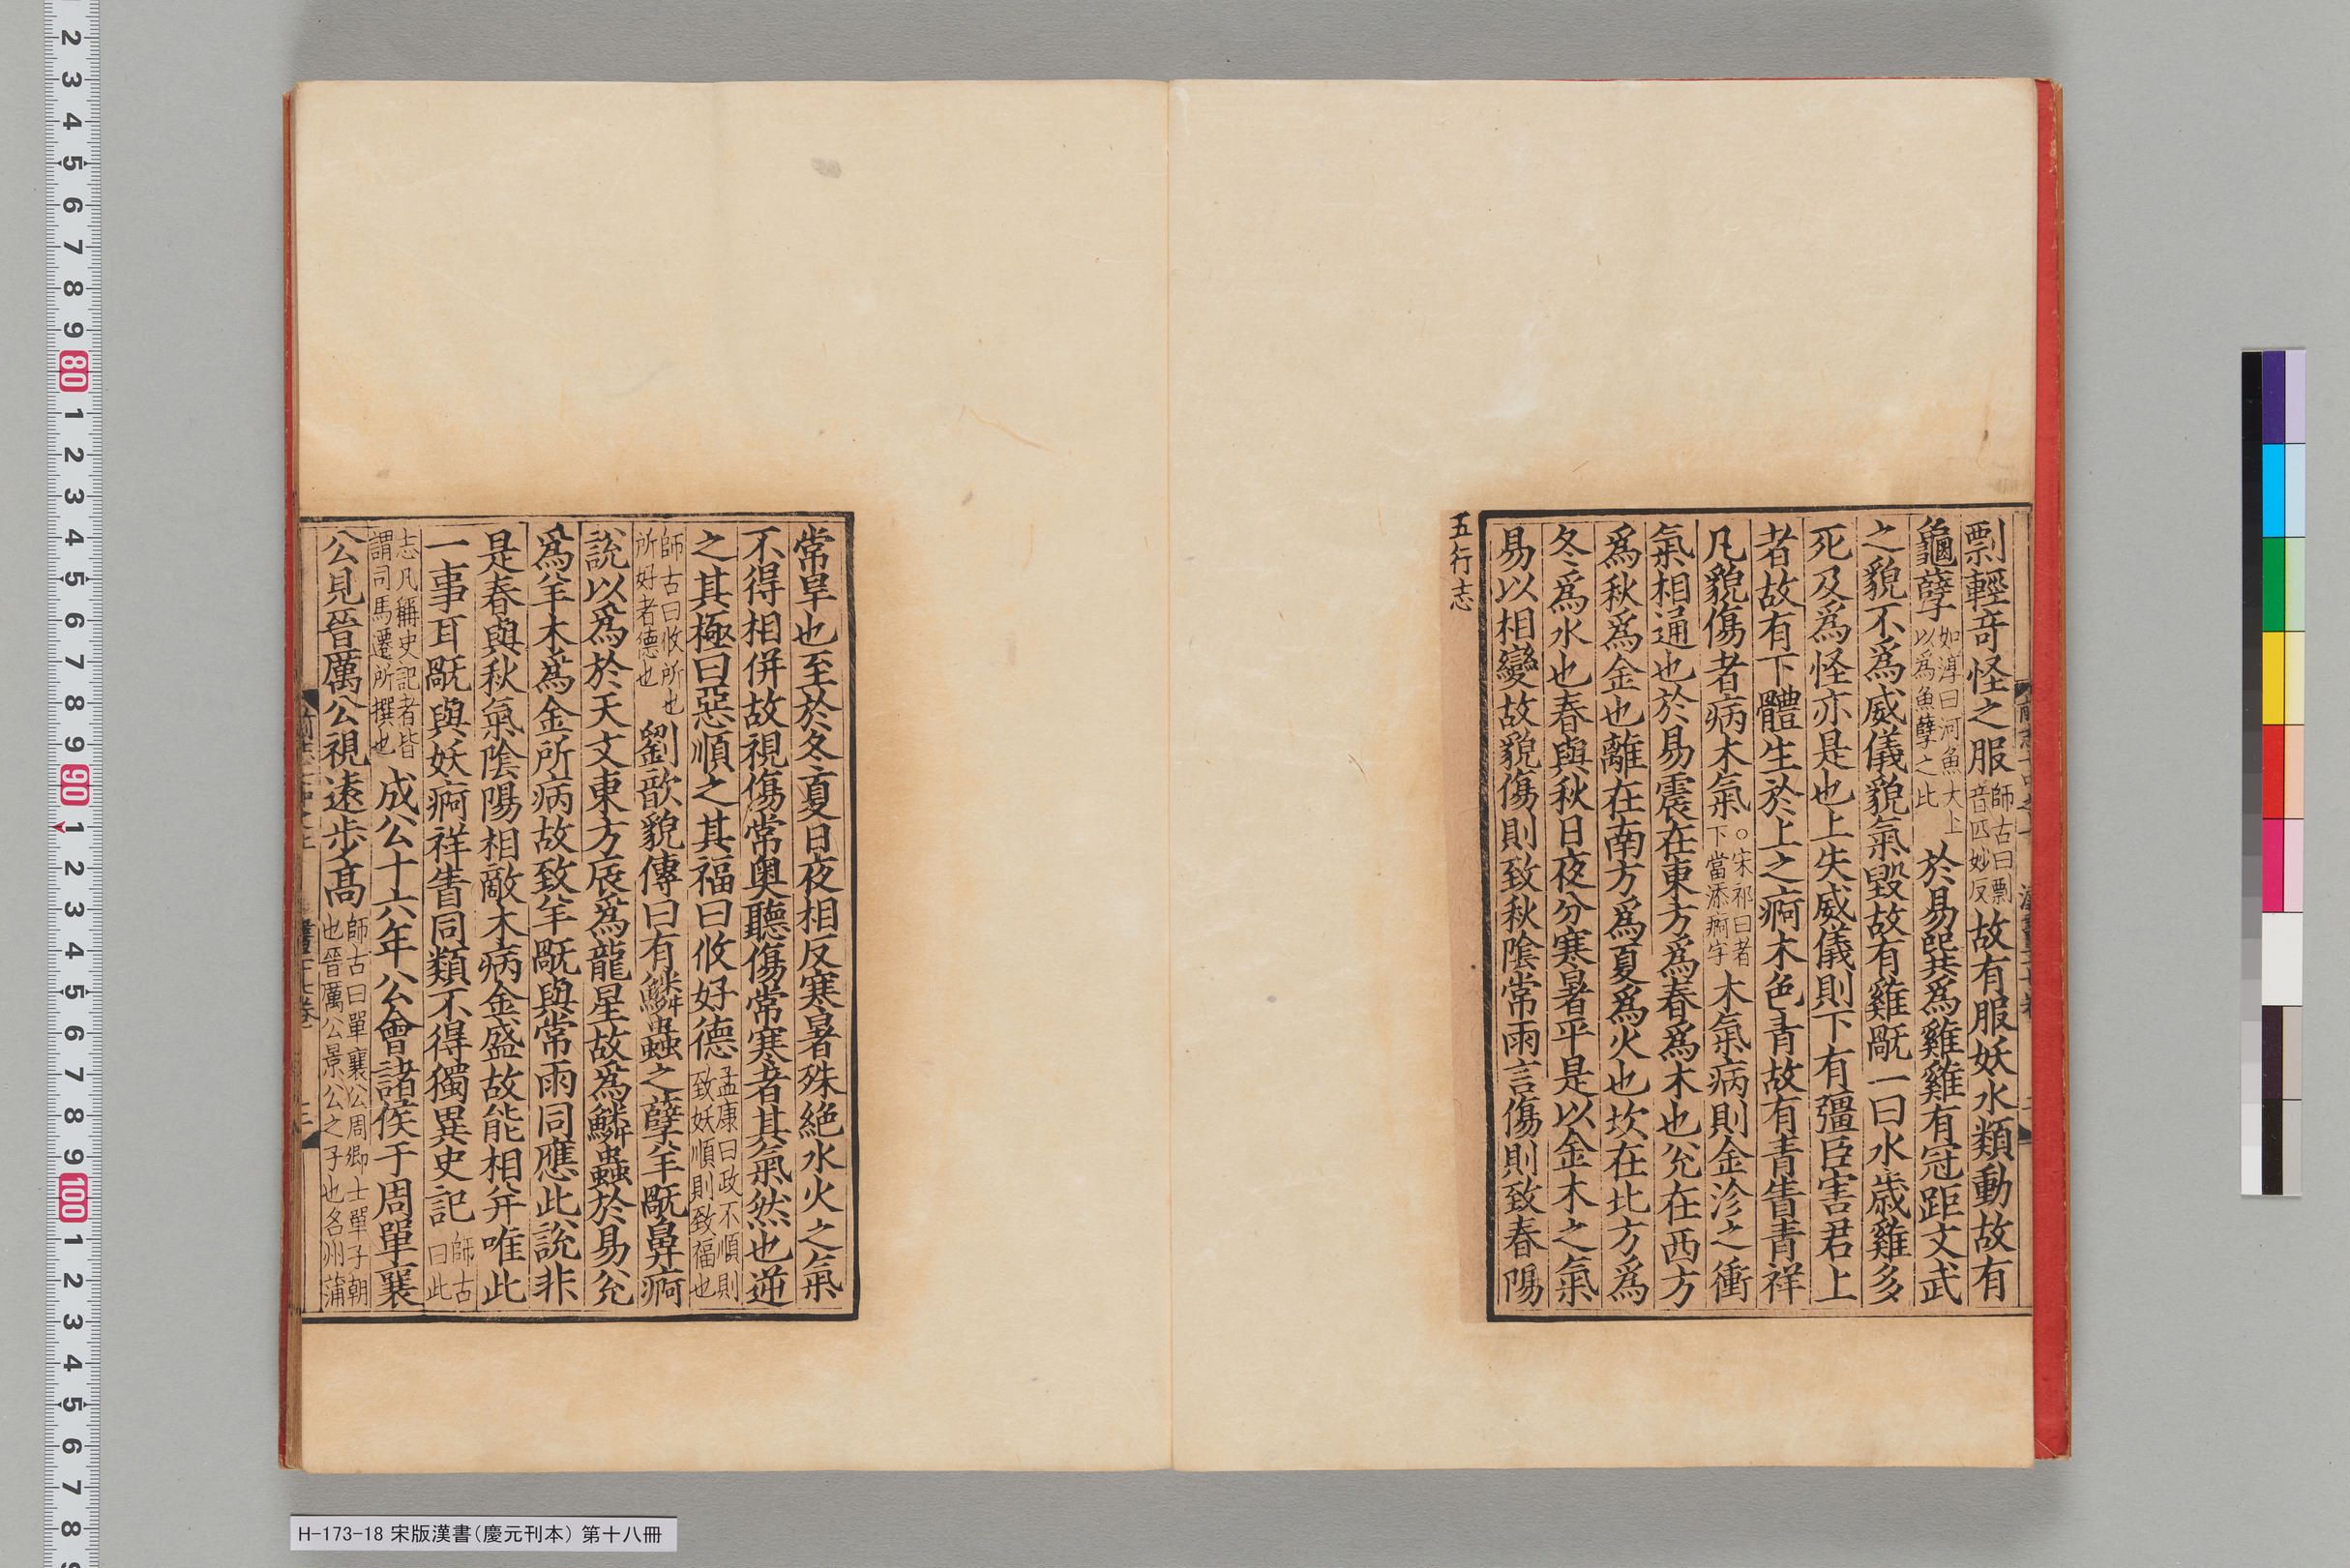 剽輕奇怪之服師古曰剽音匹妙反故有服妖水類動故有
龜孽如淳曰河魚大上以爲魚孽之比於易巽爲雞雞有冠距文武
之貌不爲威儀貌氣毀故有雞旤一曰水歲雞多
死及爲怪亦是也上失威儀則下有彊臣害君上
者故有下體生於上之痾木色青故有青眚青祥
凡貌傷者病木氣○宋祁曰者下當添痾字木氣病則金沴之衝
氣相通也於易震在東方爲春爲木也兊在西方
爲秋爲金也離在南方爲夏爲火也坎在北方爲
冬爲水也春與秋日夜分寒暑平是以金木之氣
易以相變故貌傷則致秋陰常雨言傷則致春陽
五行志
常旱也至於冬夏日夜相反寒暑殊絶水火之氣
不得相併故視傷常奧聽傷常寒者其氣然也逆
之其極曰惡順之其福曰攸好德孟康曰政不順則致妖順則致福也
師古曰攸所也所好者德也劉歆貌傳曰有鱗蟲之孽羊旤鼻痾
說以爲於天文東方辰爲龍星故爲鱗蟲於易兊
爲羊木爲金所病故致羊旤與常雨同應此說非
是春與秋氣陰陽相敵木病金盛故能相并唯此
一事耳旤與妖痾祥眚同類不得獨異史記師古曰此
志凡稱史記者皆謂司馬遷所撰也成公十六年公會諸侯于周單襄
公見晉厲公視遠步髙師古曰單襄公周卿士單子朝也晉厲公景公之子也名州蒲
H-173-18 宋版漢書(慶元刊本) 第十八冊